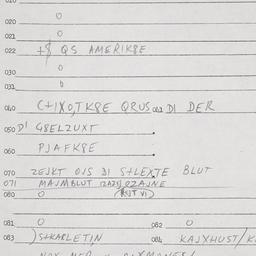 020 0
021 0
022 +$ QS AMERIK8E
030 0
031 0
040 C+IXO,TK8E QRUS 041 DI DER
050 D' G8ELZUXT
060 PJAFK8E
070 ZEJKT OJS DI S+LEXTE BLUT
071 MAJMBLUT
080 0
081 0 082 0
083 )S+KARLETIN 084 KAJXHUST/